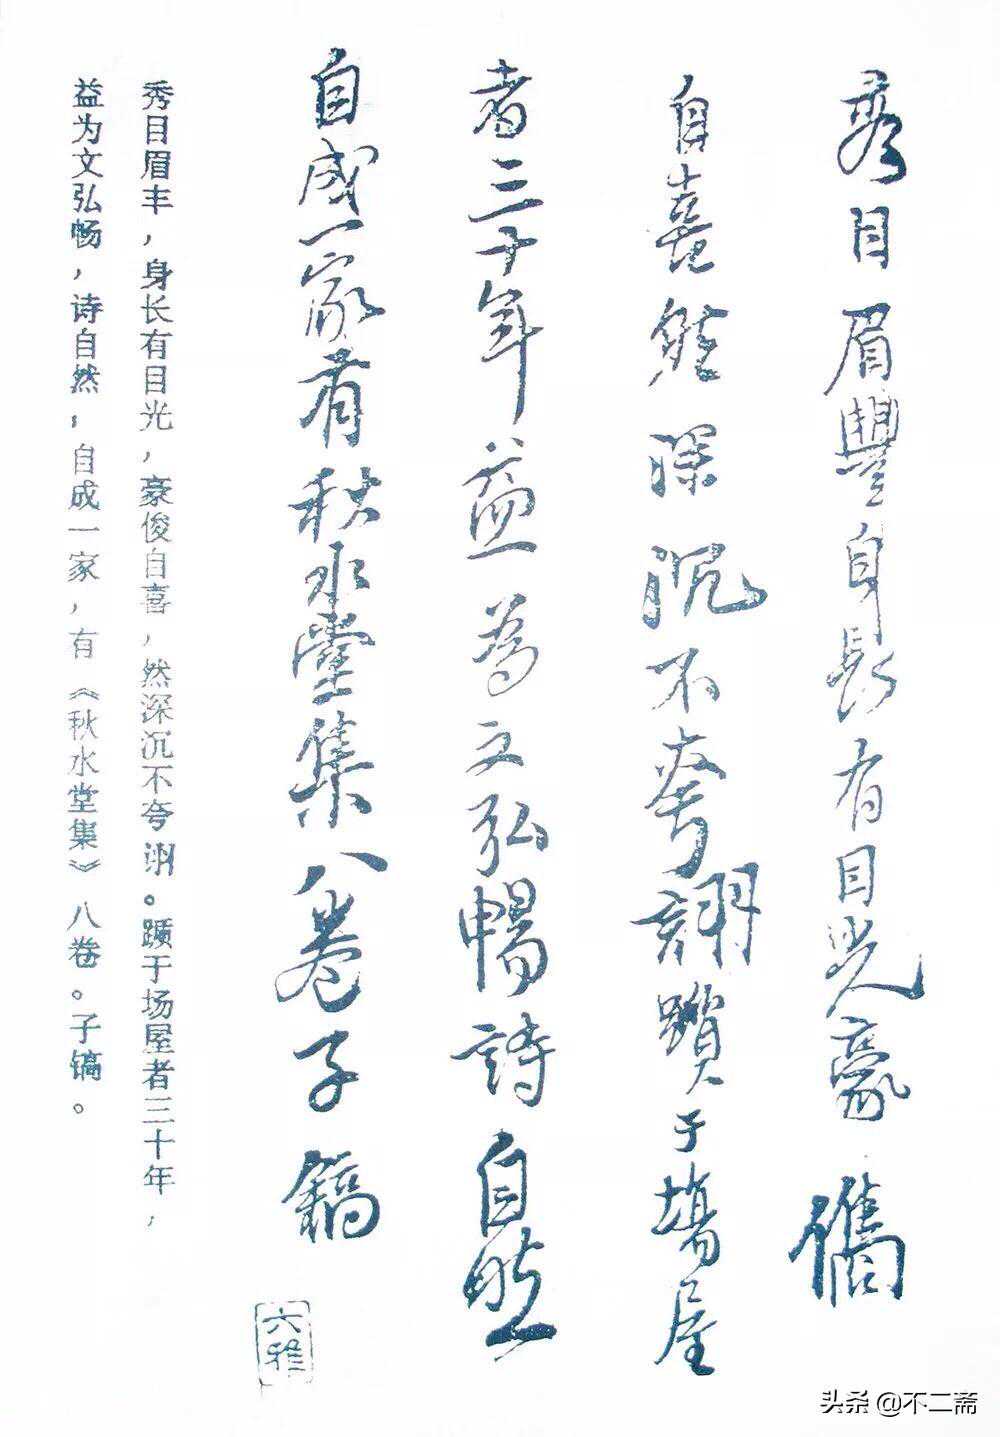 秀目眉豐身長有目光豪儁
自喜然深沉不夸詡躓于場屋
者三十年益為文弘暢詩自然
自成一家有秋水堂集八卷子鎬
六雅
秀目眉丰，身长有目光，豪俊自喜，然深沉不夸诩。踬于场屋者三十年，
益为文弘畅，诗自然，自成一家，有《秋水堂集》八卷。子镐。
头条 @不二斋